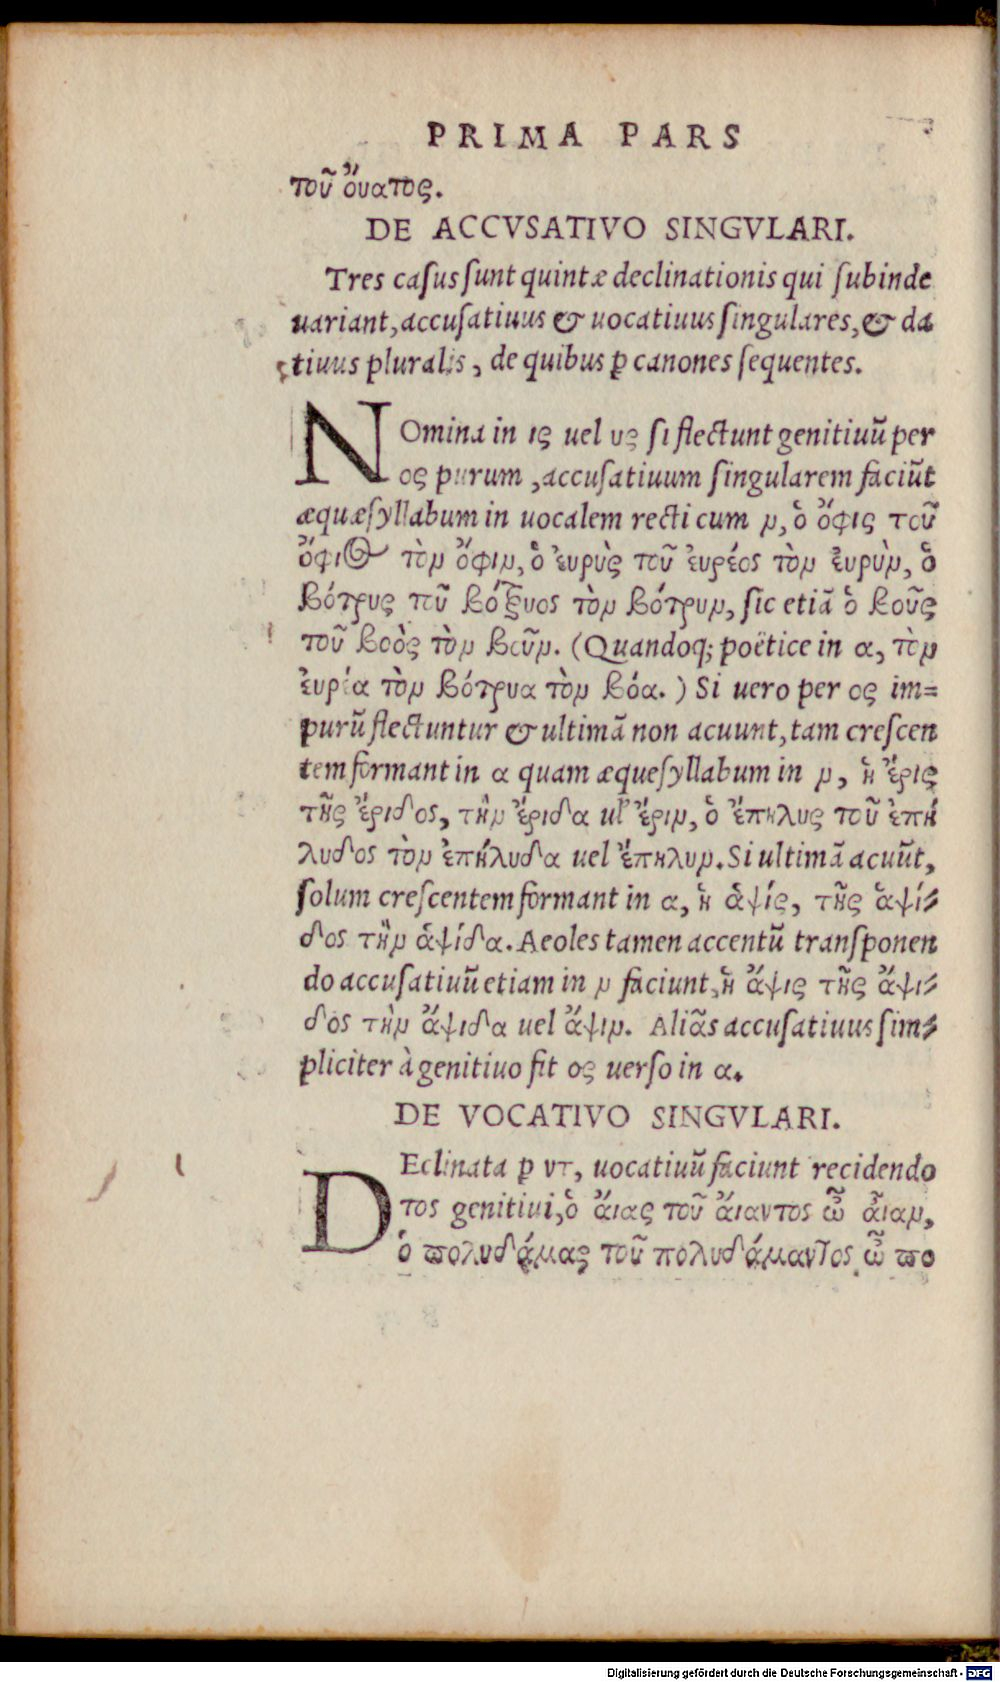 PRIMA PARS
τοῦ ὄυατος.
DE ACCVSATIVO SINGVLARI.
Tres casus sunt quintæ declinationis qui subinde
uariant, accusatiuus & uocatiuus singulares, & da
tiuus pluralis, de quibus ꝑ canones sequentes.
NOmina in ις uel υς si flectunt genitiuũ per
ος purum, accusatiuum singularem faciũt
æquæsyllabum in uocalem recti cum ν, ὁ ὄφις τοῦ
ὄφιος τὸν ὄφιν, ὁ ἐυρὺς τοῦ ἐυρέος τὸν ἐυρὺν, ὁ
βότρυς τοῦ βότρυος τὸν βότρυν, sic etiã ὁ βοῦς
τοῦ βοὸς τὸν βοῦν. (Quandoq; poëtice in α, τὸν
ἐυρέα τὸν βότρυα τὸν βόα.) Si uero per ος im=
purũ flectuntur & ultimã non acuunt, tam crescen
tem formant in α quam æquesyllabum in ν, ἡ ἔρις
τῆς ἔριδος, τὴν ἔριδα ul̃ ἔριν, ὁ ἔπηλυς τοῦ ἐπή
λυδος τὸν ἐπήλυδα uel ἔπηλυν. Si ultimã acuũt,
solum crescentem formant in α, ἡ ἁψίς, τῆς ἁψί=
δος τὴν ἁψίδα. Aeoles tamen accentũ transponen
do accusatiuũ etiam in ν faciunt, ἡ ἄψις τῆς ἄψι=
δος τὴν ἄψιδα uel ἄψιν. Aliãs accusatiuus sim=
pliciter à genitiuo fit ος uerso in α.
DE VOCATIVO SINGVLARI.
DEclinata ꝑ ντ, uocatiuũ faciunt recidendo
τος genitiui, ὁ ἄιας τοῦ ἄιαντος ὦ ἆιαν,
ὁ πολυδάμας τοῦ πολυδάμαντος ὦ πο
Digitalisierung gefördert durch die Deutsche Forschungsgemeinschaft - DFG